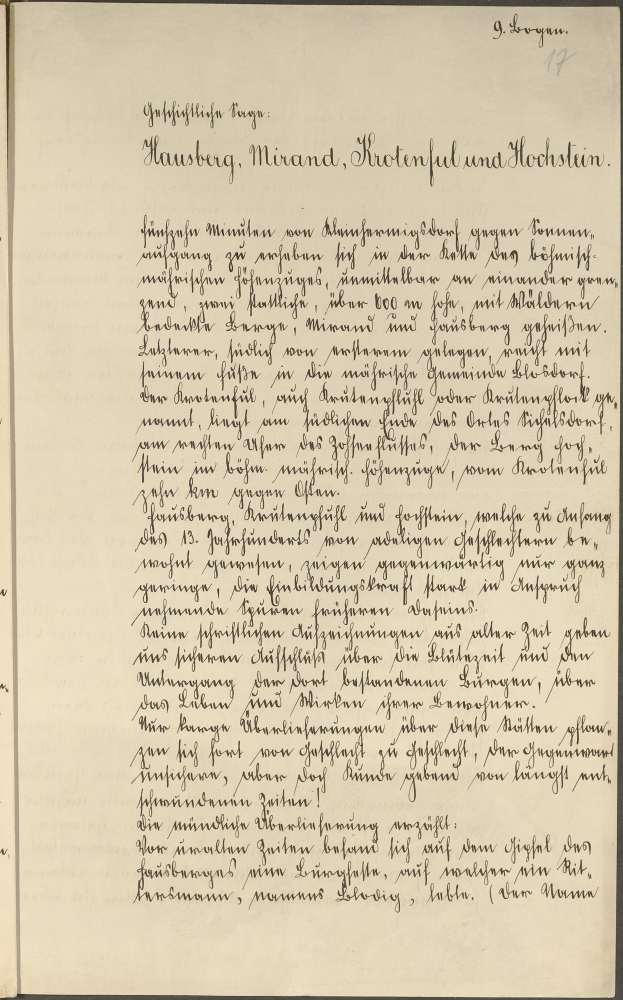 9. Bogen.
17
Geschichtliche Sage:
Hausberg, Mirand, Krotenful und Hochstein.
Fünfzehn Minuten von Kleinhermigsdorf gegen Sonnen-
aufgang zu erheben sich in der Kette des böhmisch-
mährischen Höhenzuges, unmittelbar an einander gren-
zend, zwei stattliche, über 600 m hohe, mit Wäldern
bedeckte Berge, Mirand und Hausberg geheißen.
Letzterer, südlich von ersterem gelegen, reicht mit
seinem Fuße in die mährische Gemeinde Blosdorf.
Der Krotenfül, auch Krutenpfluhl oder Krutenpflock ge-
nannt, liegt am südlichen Ende des Ortes Sichelsdorf,
am rechten Ufer des Zohseeflusses, der Berg Hoch-
stein im böhm. mährisch. Höhenzuge, vom Krotenfül
zehn km gegen Osten.
Hausberg, Krutenpfuhl und Hochstein, welche zu Anfang
des 13. Jahrhunderts von adeligen Geschlechtern be-
wohnt gewesen, zeigen gegenwärtig nur ganz
geringe, die Einbildungskraft stark in Anspruch
nehmende Spuren früheren Daseins.
Keine schriftlichen Aufzeichnungen aus alter Zeit geben
uns sicheren Aufschluß über die Blütezeit und den
Untergang der dort bestandenen Burgen, über
das Leben und Wirken ihrer Bewohner.
Nur karge Überlieferungen über diese Stätten pflan-
zen sich fort von Geschlecht zu Geschlecht, der Gegenwart
unsichere, aber doch Kunde gebend von längst ent-
schwundenen Zeiten!
Die mündliche Überlieferung erzählt:
Vor uralten Zeiten befand sich auf dem Gipfel des
Hausberges eine Burgfeste, auf welcher ein Rit-
tersmann, namens Blodig, lebte. (Der Name